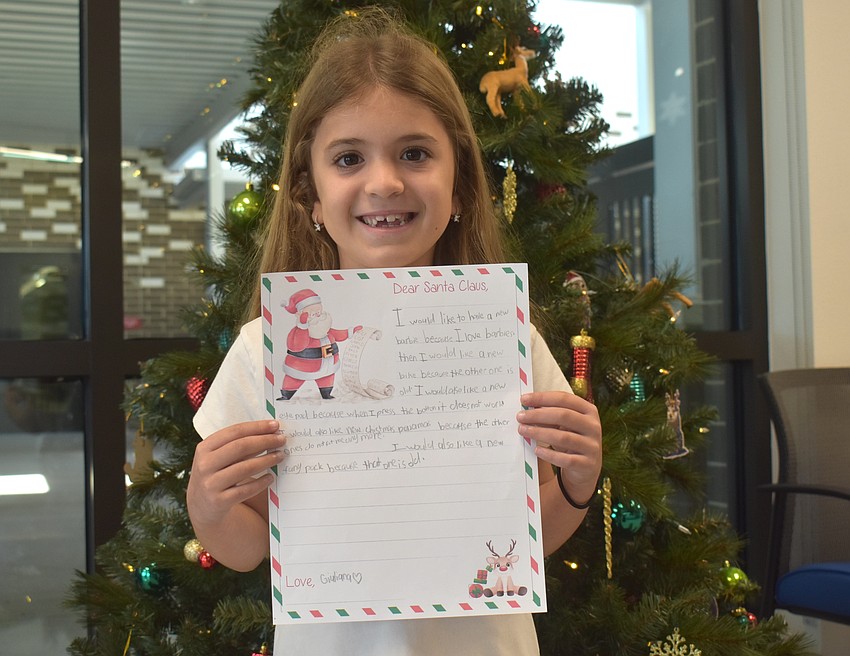 Dear Santa Claus,
I would like to have a new
barbie because I love barbies
then I would like a new
bike because the other one is
old I would also like a new
because when I press the button it doesnot work
I would also like new christmas because the other
ones do not fit me any more. I would also like a new
pack because that one is old.
Love, Giuliana